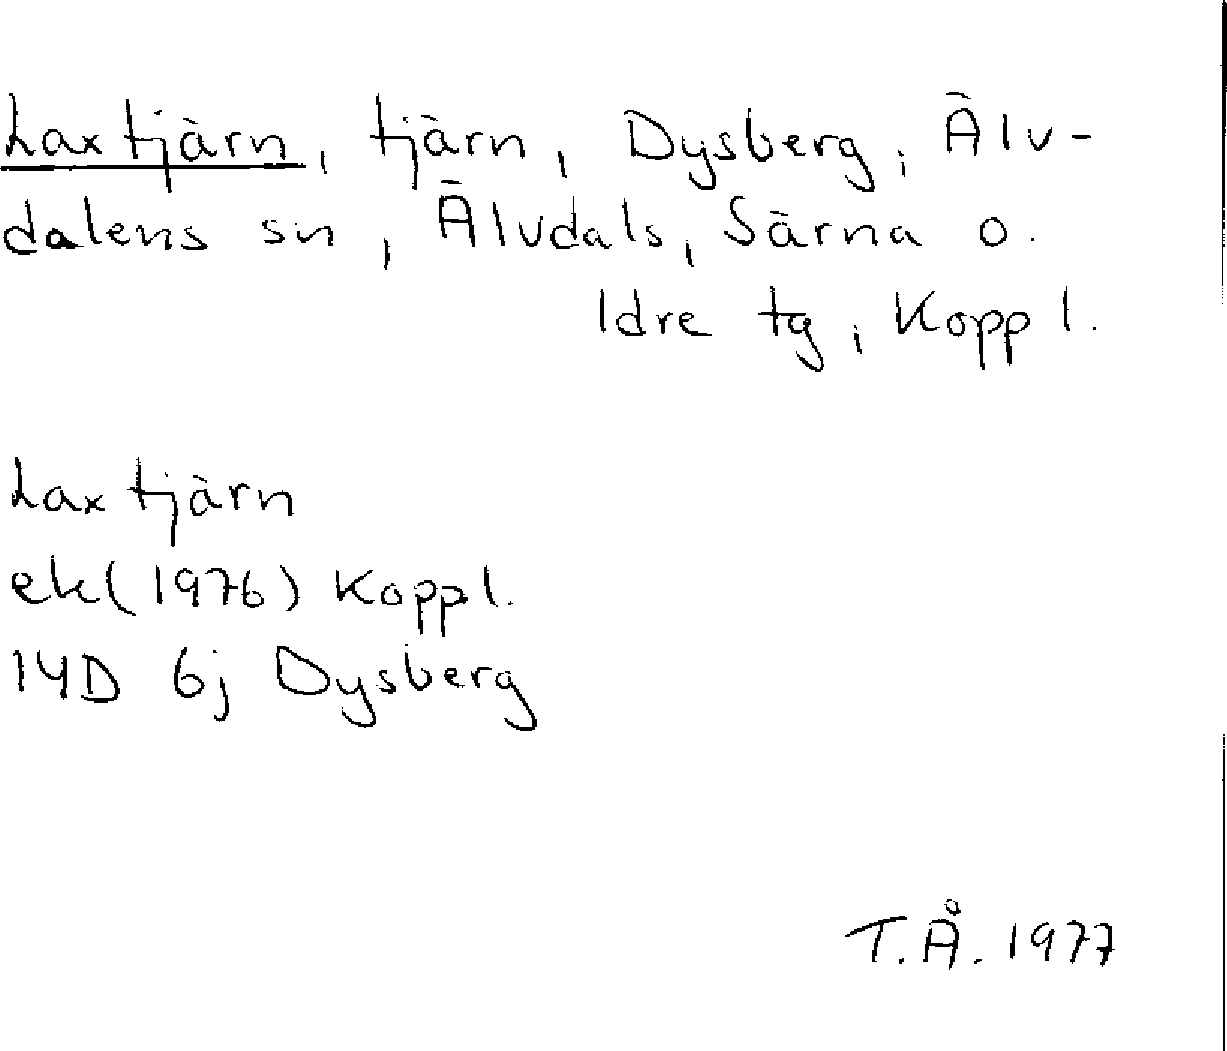 Laxtjärn, tjärn, Dysberg, Älv-
dalens sn, Älvdals, Särna o.
Idre tg, Kopp l.
Laxtjärn
ek(1976) Kopp l.
14D 6j Dysberg
T.Å. 1977